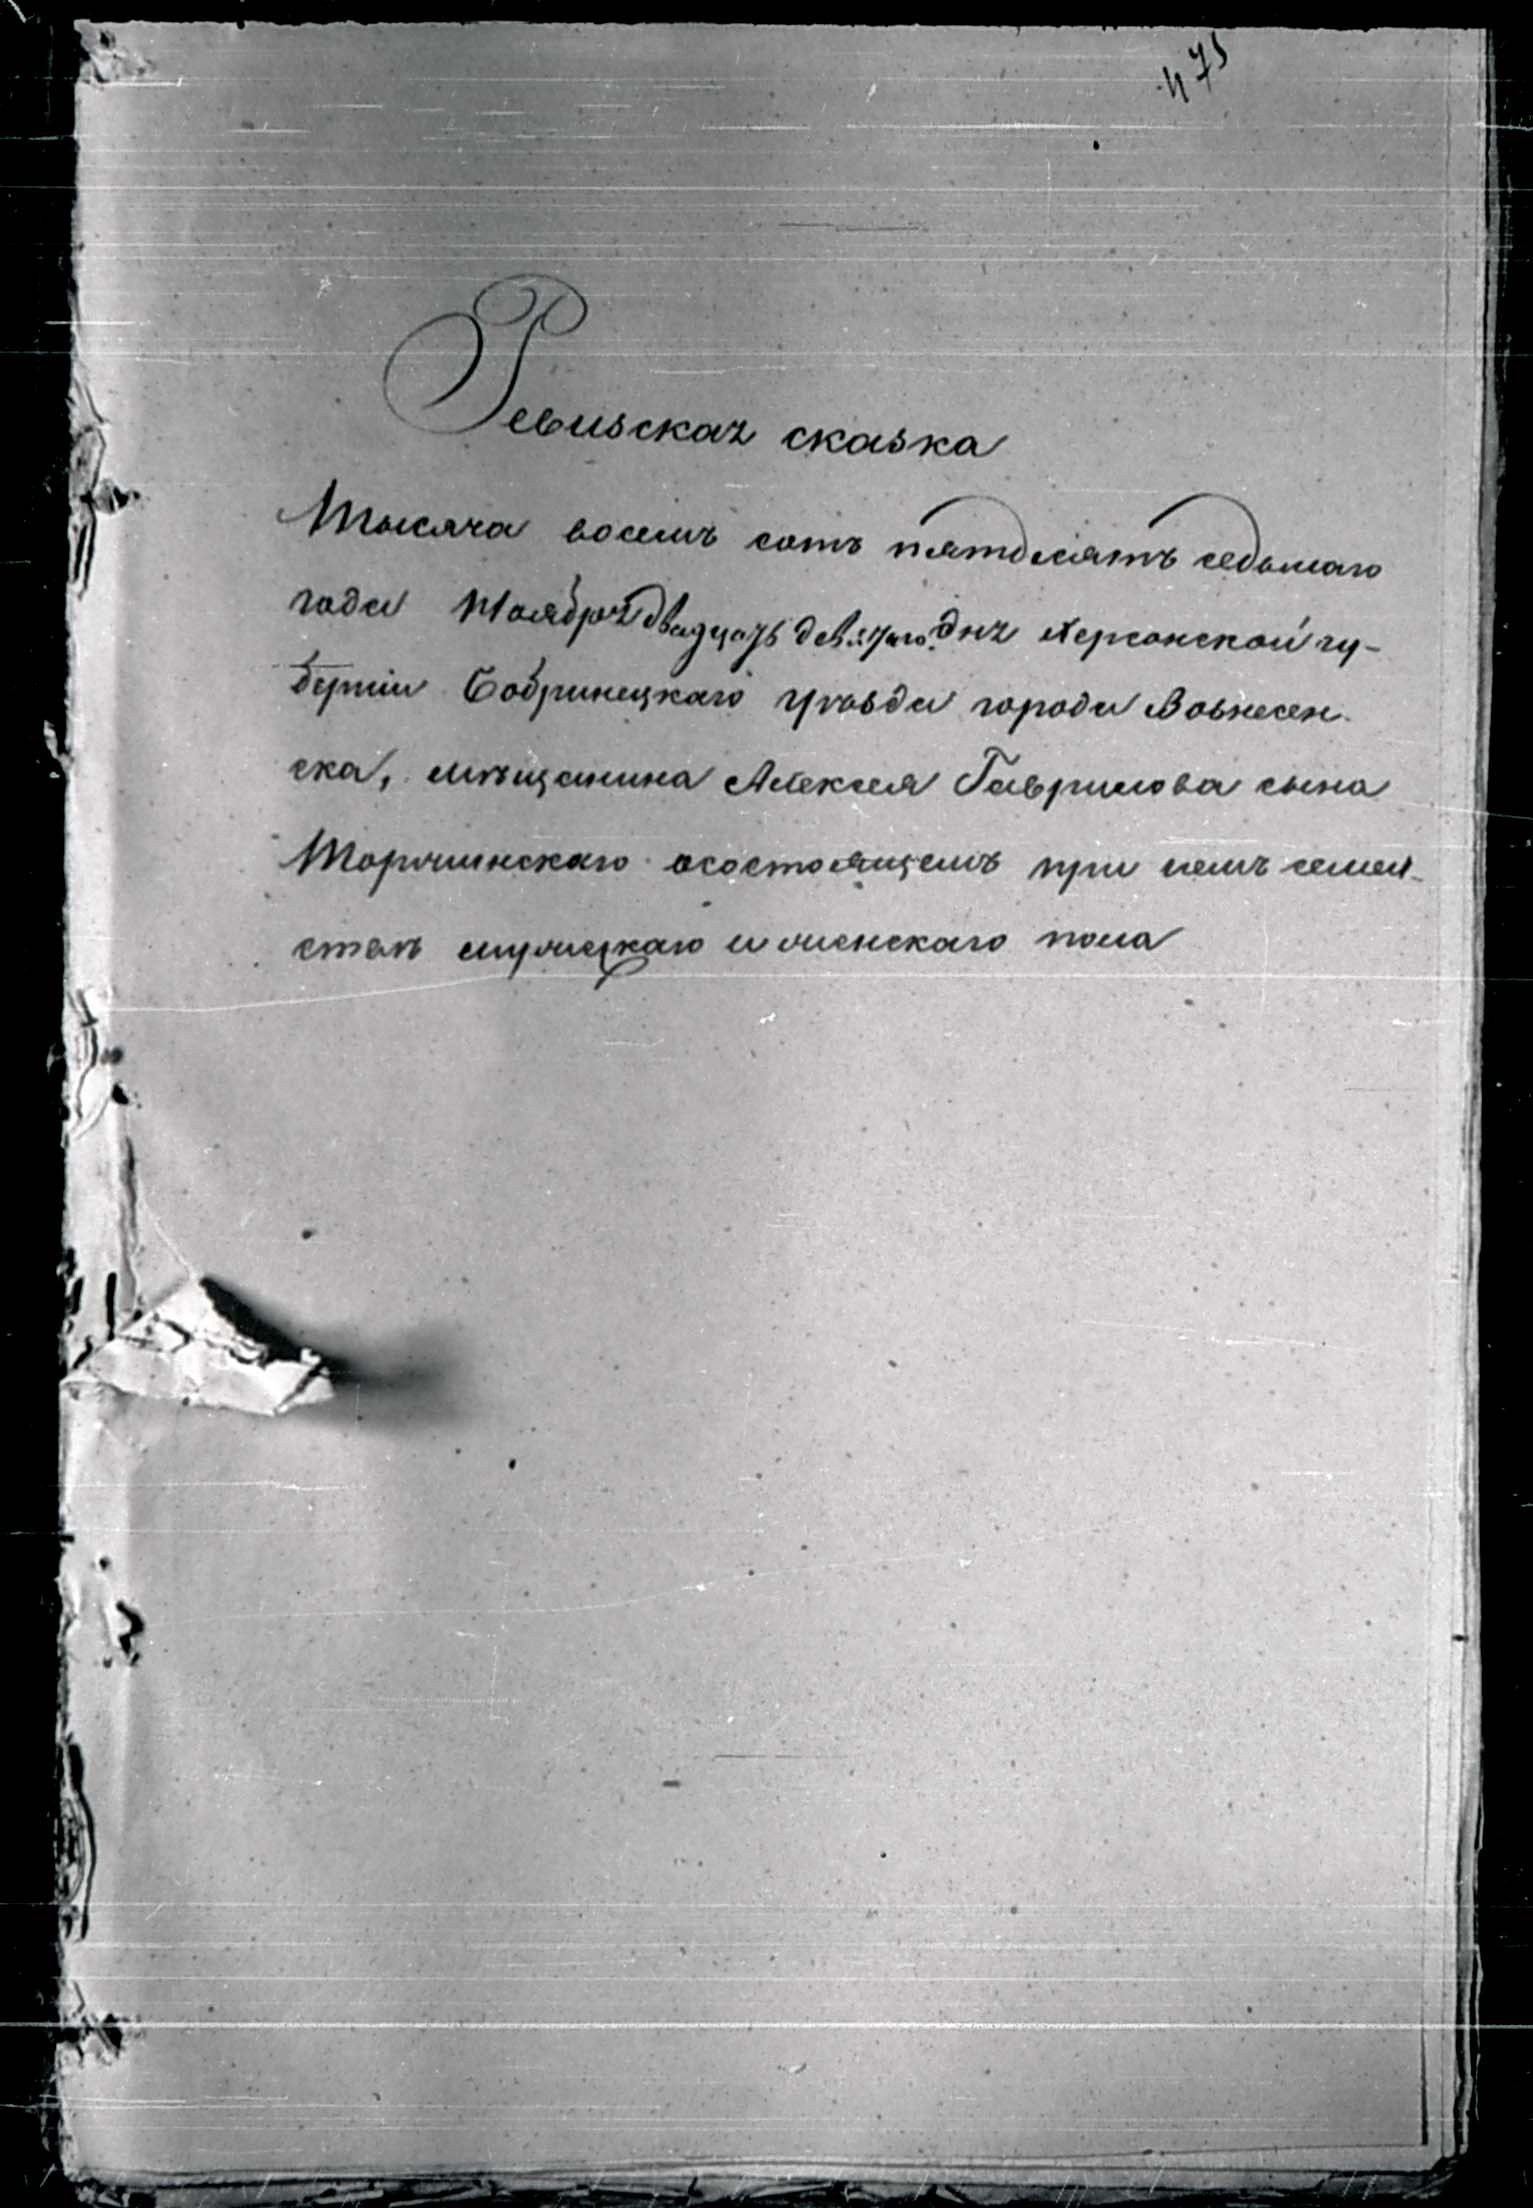 475
Ревизская сказка
Тысяча восемь сотъ пятдесятъ седьмаго
года Ноября двадцать девятаго дня Херсонской гу-
берніи Бобринецкаго уѣзда города Вознесен-
ска, мѣщанина Алексея Гаврилова сына
осостоящемъ при немъ семей-
ствѣ мужескаго и женскаго пола